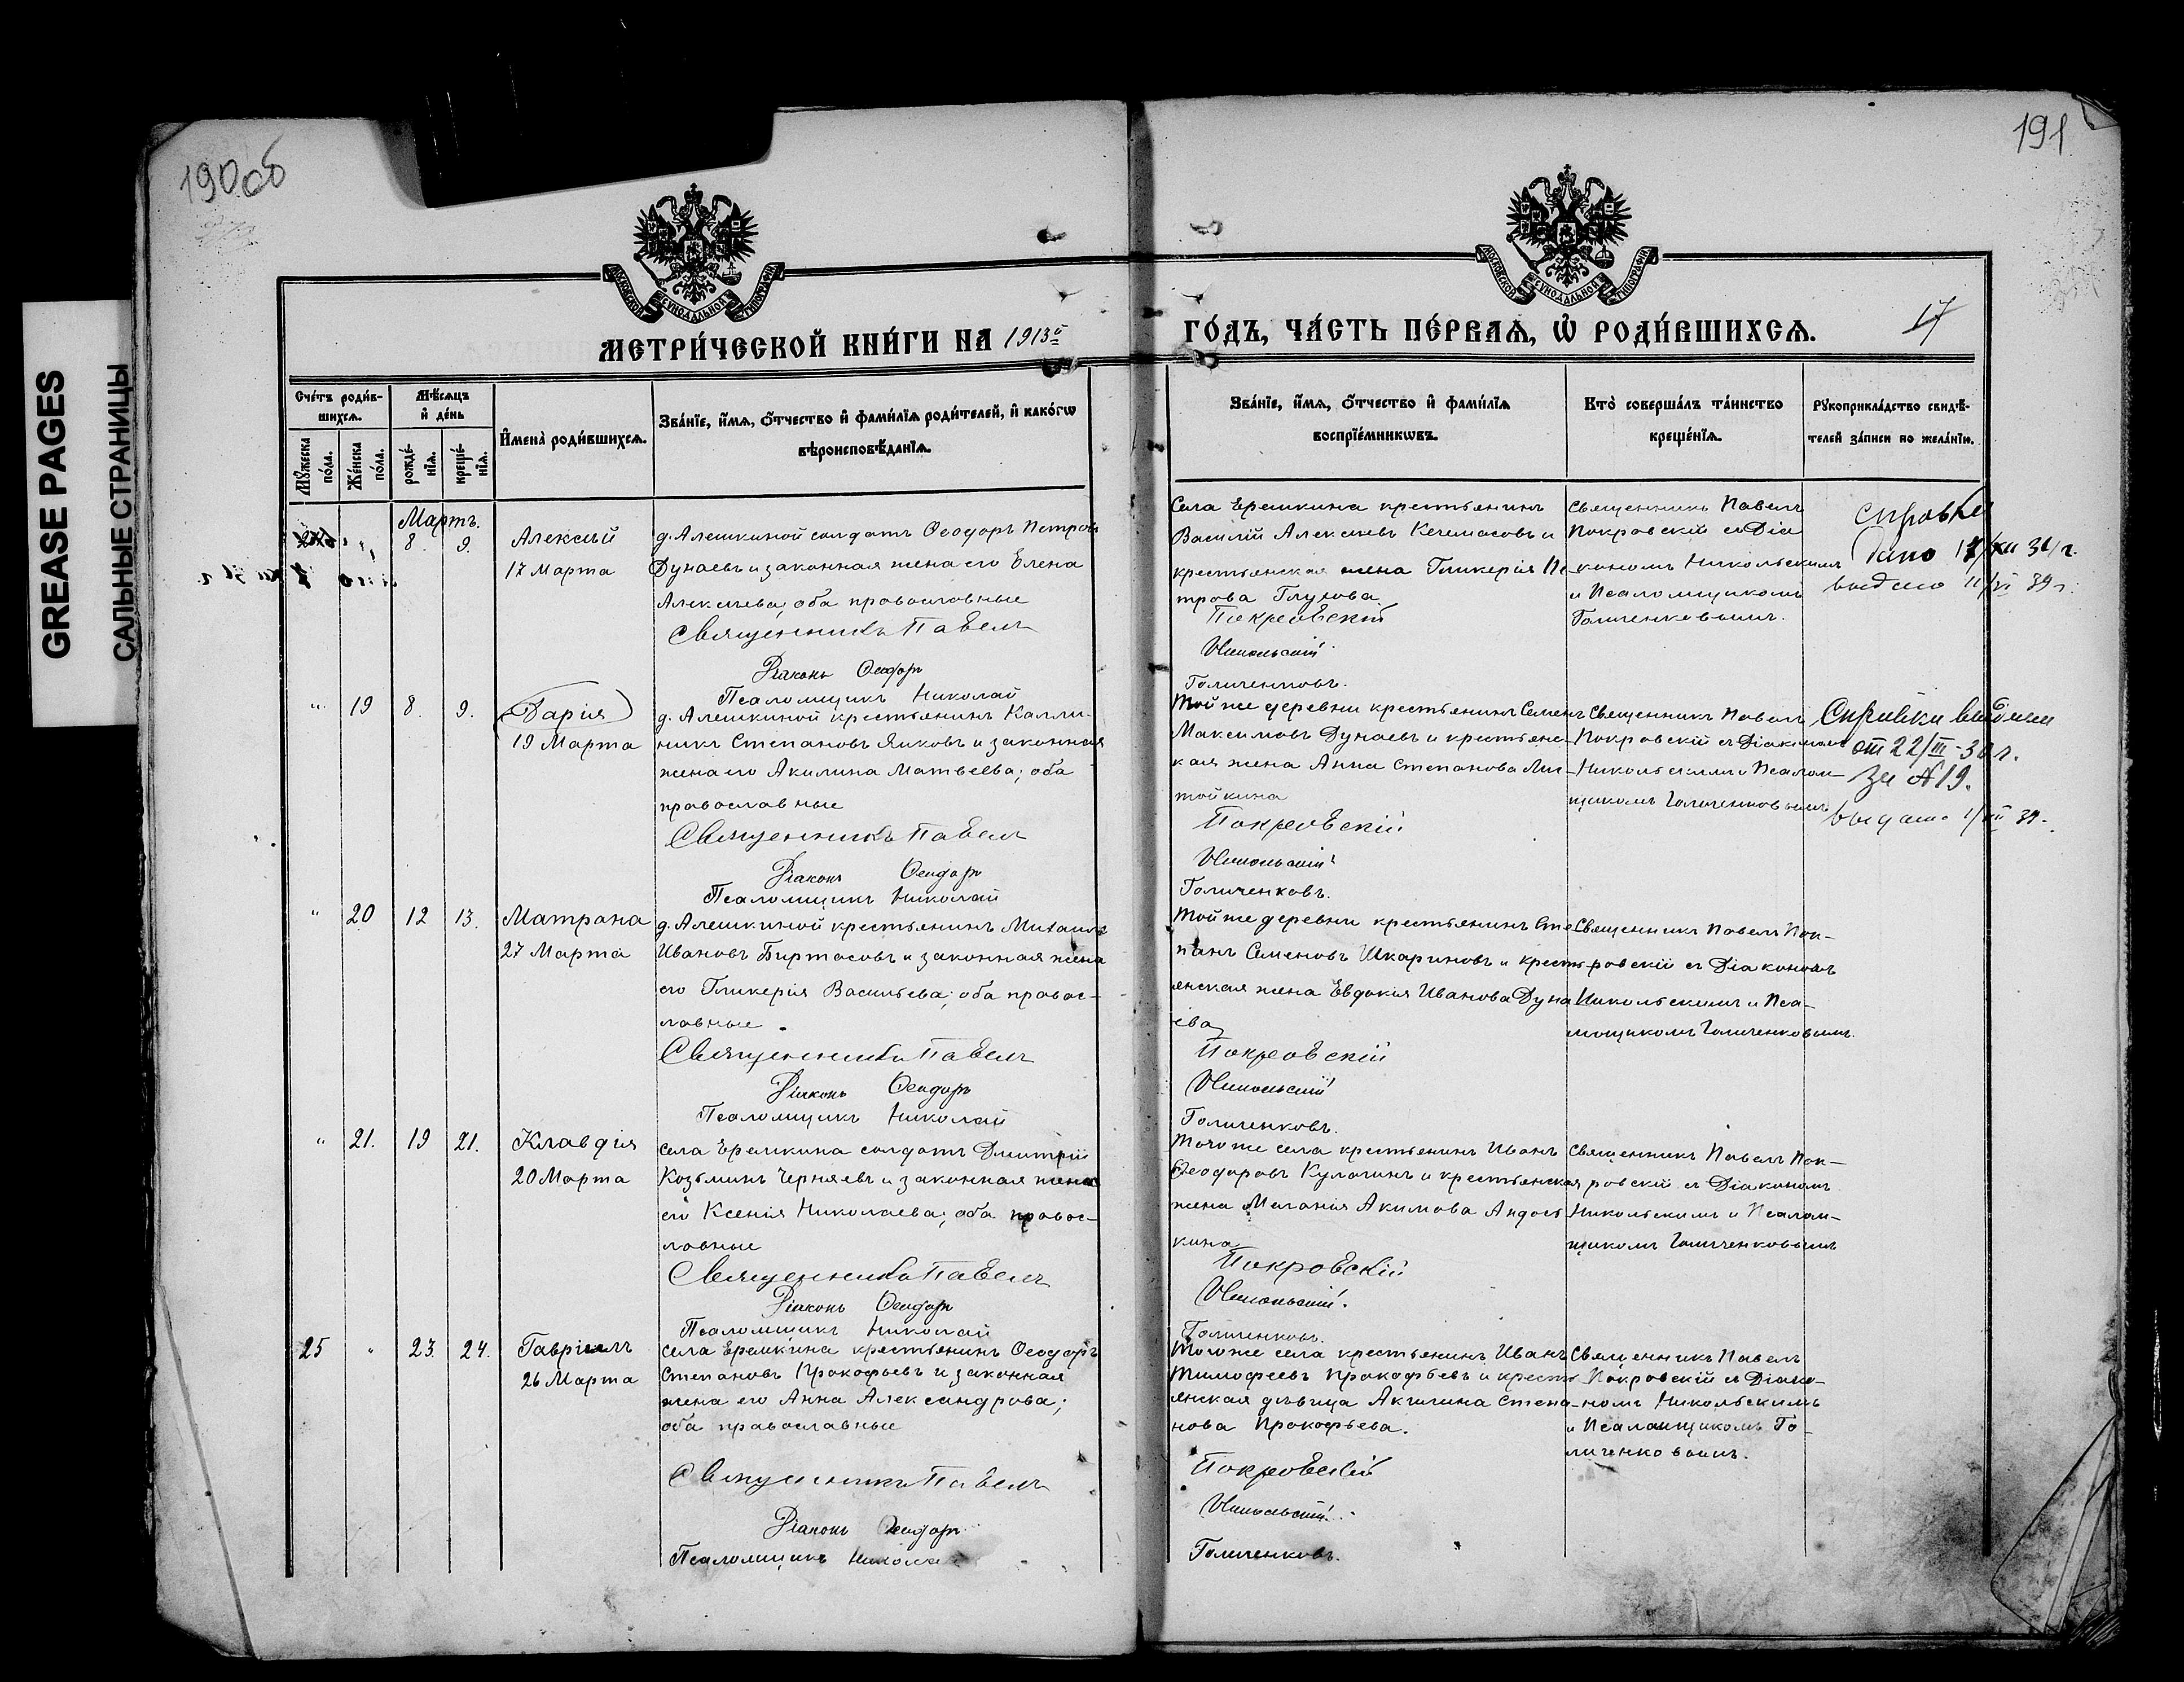 190об
191
GREASE PAGES
САЛЬНЫЕ СТРАНИЦЫ
МОСКОВСКОЙ СѴНОДАЛЬНОЙ ТИПОГРАФІИ
МОСКОВСКОЙ СѴНОДАЛЬНОЙ ТИПОГРАФІИ
МЕТРИ́ЧЕСКОЙ КНИ́ГИ НА 1913й
ГО́ДЪ, ЧА́СТЬ ПЕ́РВАѦ, Ѡ҆ РОДИ́ВШИХСѦ.
17
Сче́тъ роди́в-
шихсѧ.
Мꙋ́жеска по́ла.
Же́нска по́ла.
Мѣ́сѧцъ
и҆ де́нь
рожде́-
нїѧ.
креще́-
нїѧ.
И҆мена̀ роди́вшихсѧ.
Зва́нїе, и҆́мѧ, ѻ҆́тчество и҆ фами́лїѧ роди́телей, и҆ како́гѡ
вѣроисповѣ́данїѧ.
Зва́нїе, и҆́мѧ, ѻ҆́тчество и҆ фами́лїѧ
воспрїе́мникѡвъ.
Кто̀ соверша́лъ та́инство
креще́нїѧ.
Рꙋкоприкла́дство свидѣ́-
телей за́писи по жела́нїю.
Мартъ.
8. 9.
Алексѣй
17 Марта
д. Алешкиной солдатъ Ѳеодоръ Петровъ
Дунаевъ и законная жена его Елена
Алексѣева, оба православные
Священникъ Павелъ
Діаконъ Ѳеодоръ
Псаломщикъ Николай
Села Еремкина крестьянинъ
Василій Алексѣевъ Кечемасовъ и
крестьянская жена Гликерія Пе-
трова Глухова
Покровскій
Никольскій
Голиченковъ.
Священникъ Павелъ
Покровскій съ Діа
кономъ Никольскимъ
и Псаломщикомъ
Голиченковымъ.
справка
дано 17/XII 31 г.
выдано 11/VI 39 г.
" 19 8. 9.
Дарія
19 Марта
д. Алешкиной крестьянинъ Калли-
никъ Степановъ Янковъ и законная
жена его Акилина Матвеева; оба
православные
Священникъ Павелъ
Діаконъ Ѳеодоръ
Псаломщикъ Николай
Той же деревни крестьянинъ Семенъ
Максимовъ Дунаевъ и крестьянс-
кая жена Анна Степанова Ли-
тойкина
Покровскій
Никольскій
Голиченковъ.
Священникъ Павелъ
Покровскій съ Діакономъ
Никольскимъ и Псалом-
щикомъ Голиченковымъ
Справки выданы
от 22/III-30 г.
за № 19.
" 20 12 13.
Матрона
27 Марта
д. Алешкиной крестьянинъ Михаилъ
Ивановъ Биртасовъ и законная жена
его Гликерія Васильева; оба правос-
лавные.
Священникъ Павелъ
Діаконъ Ѳеодоръ
Псаломщикъ Николай
Той же деревни крестьянинъ Сте
панъ Семеновъ Шкариновъ и кресть
янская жена Евдокія Иванова Дуна
ева
Покровскій
Никольскій
Голиченковъ.
Священникъ Павелъ Пок-
ровскій съ Діакономъ
Никольскимъ и Пса-
мощикомъ Голиченковымъ.
" 21. 19 21.
Клавдія
20 Марта
села Еремкина солдатъ Дмитрій
Козьминъ Черняевъ и законная жена
его Ксенія Николаева; оба правос-
лавные
Священникъ Павелъ
Діаконъ Ѳеодоръ
Псаломщикъ Николай
Того же села крестьянинъ Иванъ
Ѳеодоровъ Кулагинъ и крестьянская
жена Меланія Акимова Андось-
кина
Покровскій
Никольскій.
Голиченковъ.
Священникъ Павелъ Пок-
ровскій съ Діакономъ
Никольскимъ и Псалом-
щикомъ Голиченковымъ
25 " 23. 24.
Гавріилъ
26 Марта
села Еремкина крестьянинъ Ѳеодоръ
Степановъ Прокофьевъ и законная
жена его Анна Александрова;
оба православные
Священникъ Павелъ
Діаконъ Ѳеодоръ
Псаломщикъ Николай
Того же села крестьянинъ Иванъ
Тимофеевъ Прокофьевъ и кресть
янская дѣвица Акилина Степа-
нова Прокофьева.
Покровскій
Никольскій.
Голиченковъ.
Священникъ Павелъ
Покровскій съ Діако-
номъ Никольскимъ
и Псаломщикомъ Го-
личенковымъ.